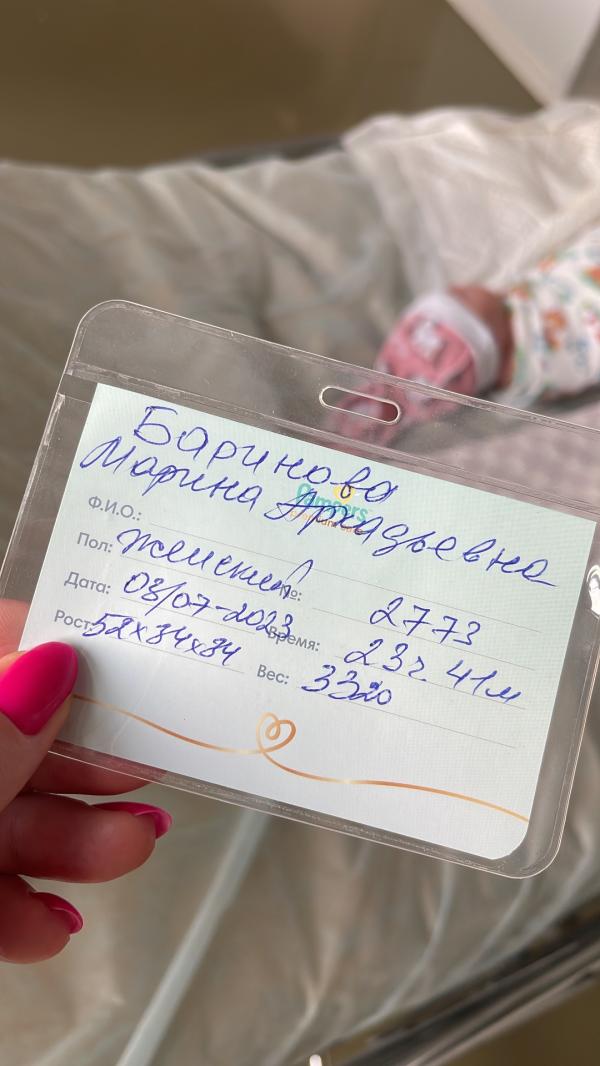 Баринова
Марина Аркадьевна
Pampers
Ф.И.О.:
Пол: Женский №: 2773
Дата: 03/07-2023 Время: 23ч 41м
Рост: 52х34х34 Вес: 3320